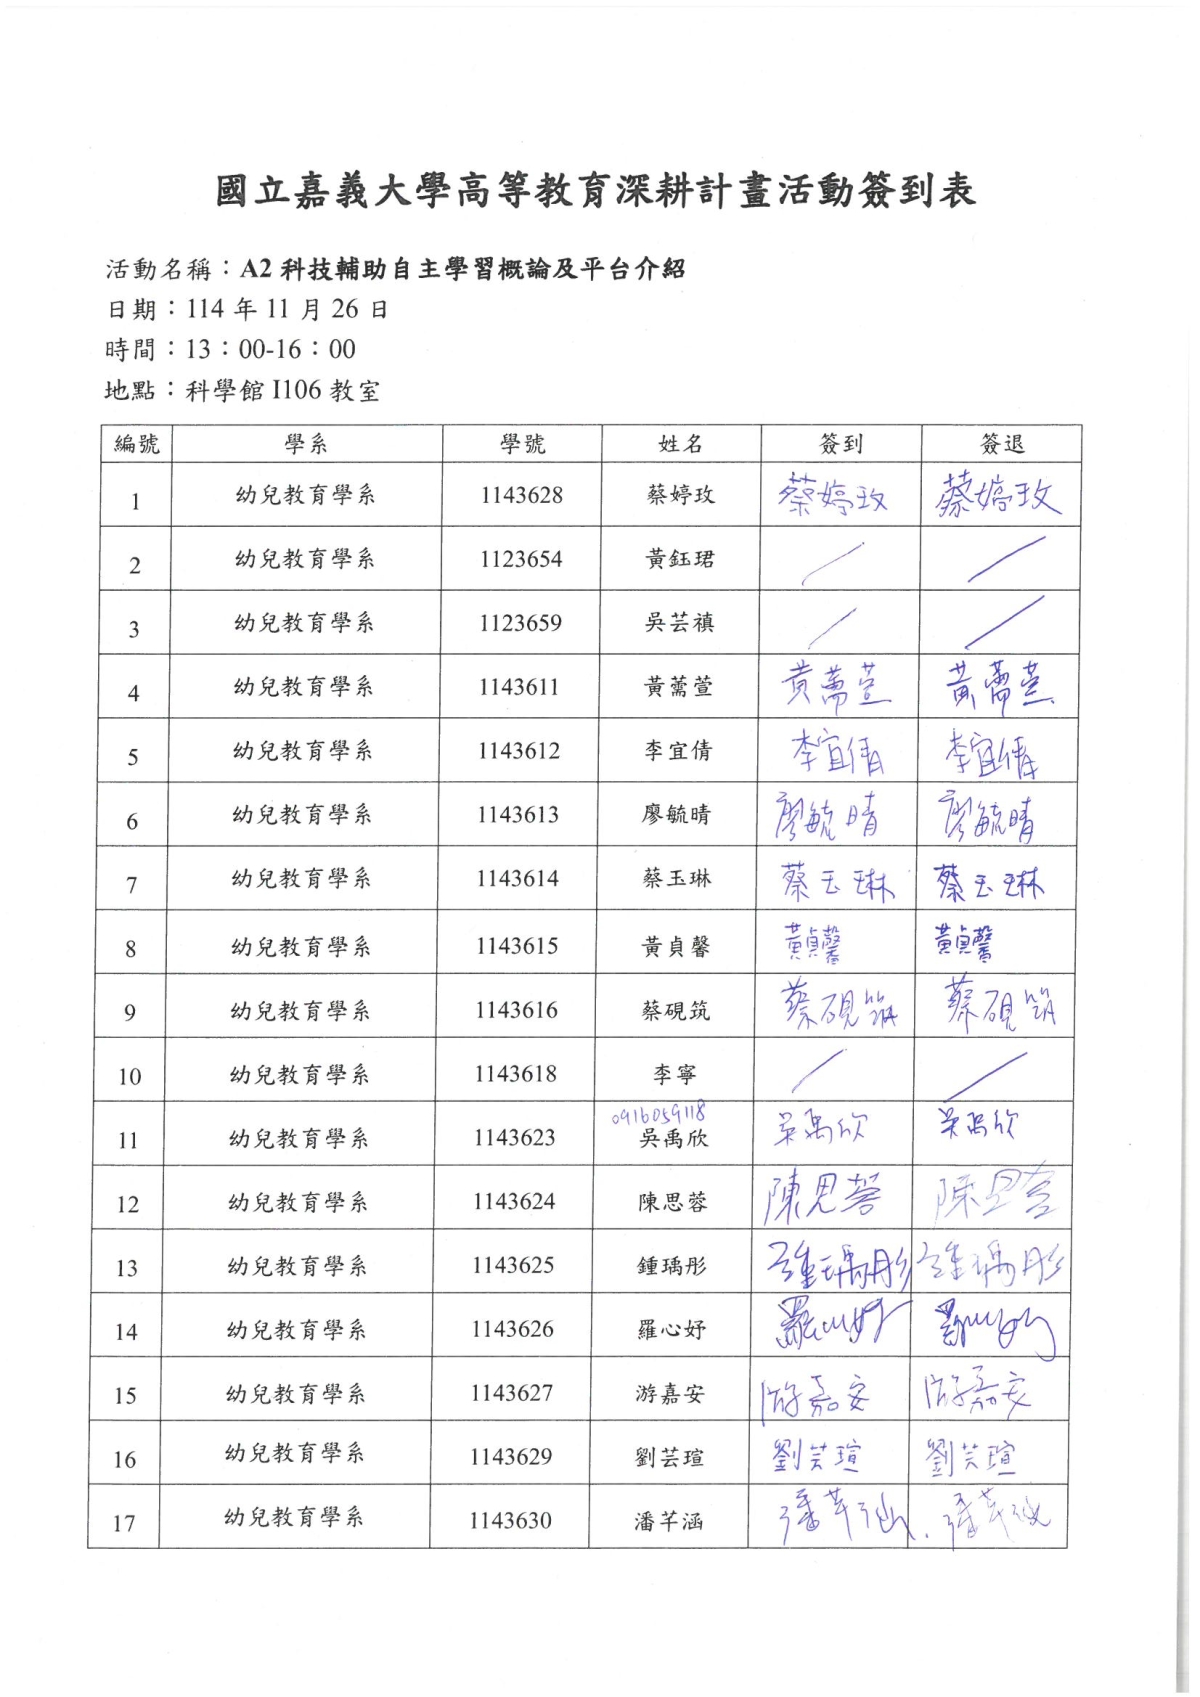 國立嘉義大學高等教育深耕計畫活動簽到表
活動名稱：A2 科技輔助自主學習概論及平台介紹
日期：114 年 11 月 26 日
時間：13：00-16：00
地點：科學館 I106 教室
編號 學系 學號 姓名 簽到 簽退
1 幼兒教育學系 1143628 蔡婷玫 蔡婷玫 蔡婷玫
2 幼兒教育學系 1123654 黃鈺珺 ／ ／
3 幼兒教育學系 1123659 吳芸禛 ／ ／
4 幼兒教育學系 1143611 黃薷萱 黃薷萱 黃薷萱
5 幼兒教育學系 1143612 李宜倩 李宜倩 李宜倩
6 幼兒教育學系 1143613 廖毓晴 廖毓晴 廖毓晴
7 幼兒教育學系 1143614 蔡玉琳 蔡玉琳 蔡玉琳
8 幼兒教育學系 1143615 黃貞馨 黃貞馨 黃貞馨
9 幼兒教育學系 1143616 蔡硯筑 蔡硯筑 蔡硯筑
10 幼兒教育學系 1143618 李寧 ／ ／
0916059118
11 幼兒教育學系 1143623 吳禹欣 吳禹欣 吳禹欣
12 幼兒教育學系 1143624 陳思蓉 陳思蓉 陳思蓉
13 幼兒教育學系 1143625 鍾瑀彤 鍾瑀彤 鍾瑀彤
14 幼兒教育學系 1143626 羅心妤 羅心妤 羅心妤
15 幼兒教育學系 1143627 游嘉安 游嘉安 游嘉安
16 幼兒教育學系 1143629 劉芸瑄 劉芸瑄 劉芸瑄
17 幼兒教育學系 1143630 潘芊涵 潘芊涵 潘芊涵